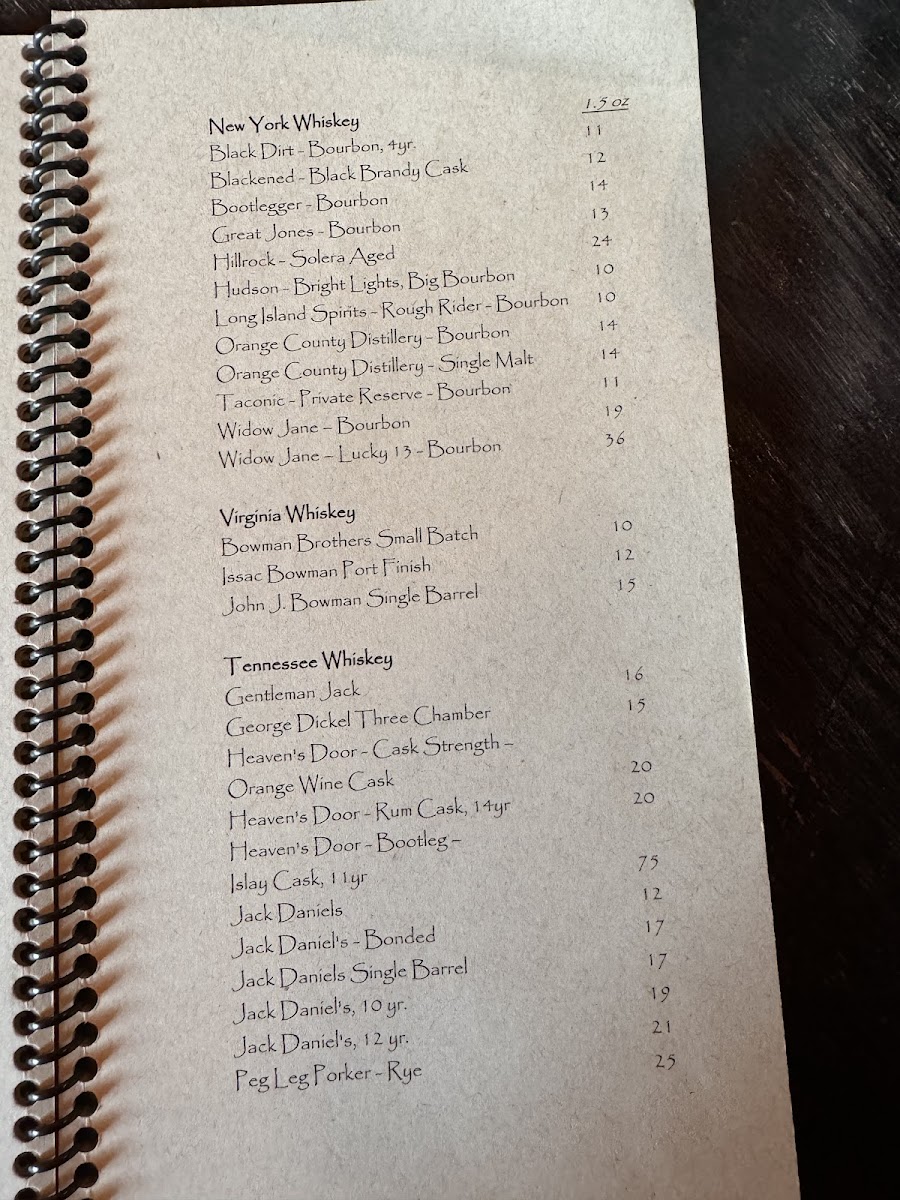 1.5 oz
New York Whiskey
Black Dirt - Bourbon, 4yr. 11
Blackened - Black Brandy Cask 12
Bootlegger - Bourbon 14
Great Jones - Bourbon 13
Hillrock - Solera Aged 24
Hudson - Bright Lights, Big Bourbon 10
Long Island Spirits - Rough Rider - Bourbon 10
Orange County Distillery - Bourbon 14
Orange County Distillery - Single Malt 14
Taconic - Private Reserve - Bourbon 11
Widow Jane – Bourbon 19
Widow Jane – Lucky 13 - Bourbon 36
Virginia Whiskey
Bowman Brothers Small Batch 10
Issac Bowman Port Finish 12
John J. Bowman Single Barrel 15
Tennessee Whiskey
Gentleman Jack 16
George Dickel Three Chamber 15
Heaven's Door - Cask Strength –
Orange Wine Cask 20
Heaven's Door - Rum Cask, 14yr 20
Heaven's Door - Bootleg –
Islay Cask, 11yr 75
Jack Daniels 12
Jack Daniel's - Bonded 17
Jack Daniels Single Barrel 17
Jack Daniel's, 10 yr. 19
Jack Daniel's, 12 yr. 21
Peg Leg Porker - Rye 25